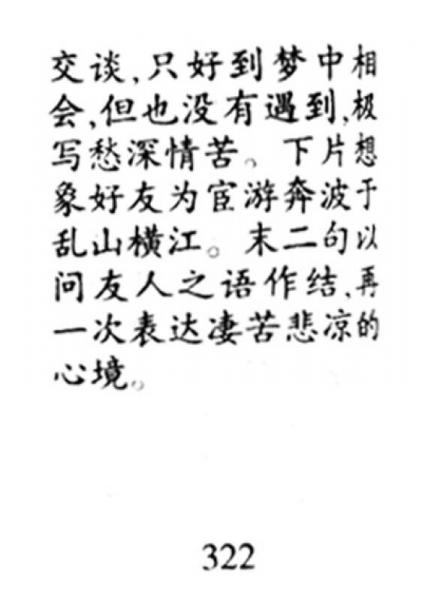 交谈,只好到梦中相
会,但也没有遇到,极
写愁深情苦。下片想
象好友为宦游奔波于
乱山横江。末二句以
问友人之语作结,再
一次表达凄苦悲凉的
心境。
322